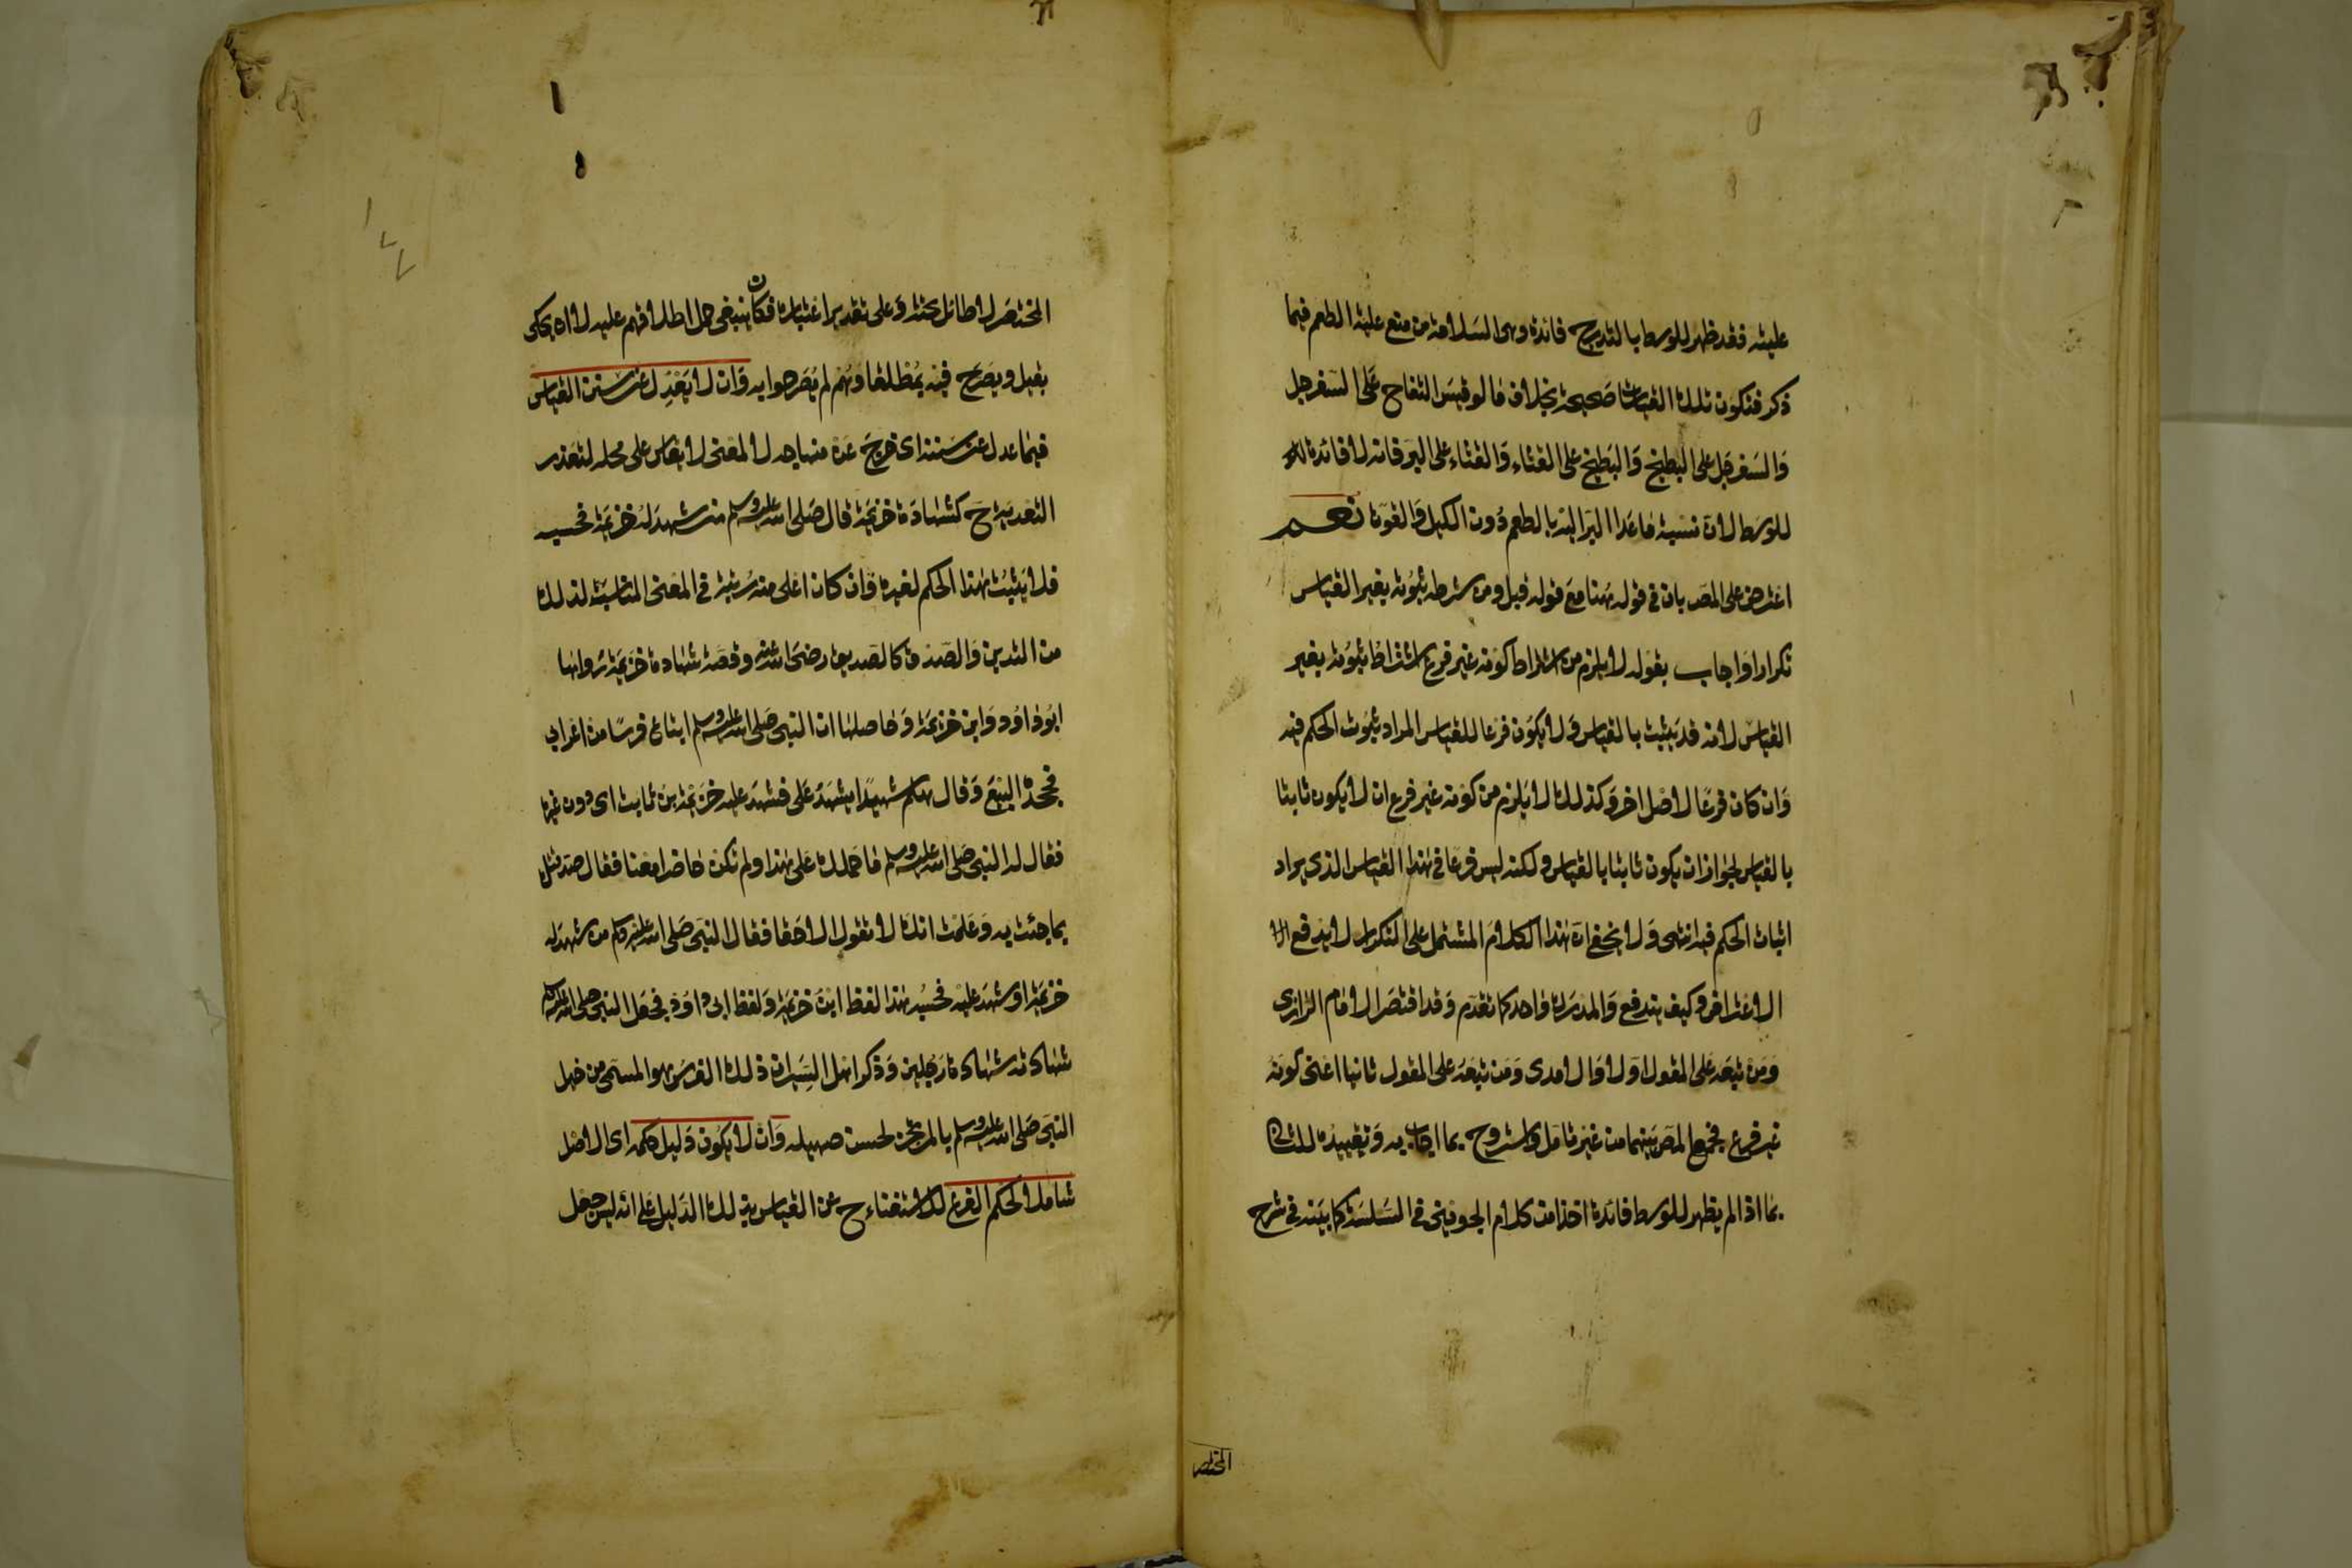 عليه فقد ظهر للوسط بالتدريج فائدة وهى السلامة من منع علية الطعم فيما
ذكر فتكون تلك القياسات صحيحة بخلاف ما لو قيس التفاح على السفرجل
والسفرجل على البطيخ والبطيخ على القثاء والقثاء على البر فانه لا فائدة
للوسط لان نسبة ما عدا البر اليه بالطعم دون الكيل والقوت نعم
اعترض على المص بان فى قوله هنا مع قوله قبل ومن شرطه ثبوته بغير القياس
تكرارا واجاب بقوله لا يلزم من اشتراط كونه غير فرع اشتراط ثبوته بغير
القياس لانه قد يثبت بالقياس ولا يكون فرعا للقياس المراد ثبوت الحكم فيه
وان كان فرعا لاصل اخر وكذلك لا يلزم من كونه غير فرع ان لا يكون ثابتا
بالقياس لجواز ان يكون ثابتا بالقياس ولكنه ليس فرعا فى هذا القياس الذى يراد
اثبات الحكم فيه انتهى ولا يخفى ان هذا الكلام المشتمل على التكرار لا يدفع
الاعتراض وكيف يندفع والمدرك واحد كما تقدم وقد اقتصر الامام الرازى
ومن تبعه على المقول اولا والامدى ومن تبعه على المقول ثانيا اعنى كونه
غير فرع فجمع المص بينهما من غير تامل واستروح بما اجاب به وتقييده للثانى
بما اذا لم يظهر للوسط فائدة اخذا من كلام الجوينى فى السلسلة كما بينه فى شرح
المختصر
المختصر لا طائل تحته وعلى تقدير اعتباره فكان ينبغى حمل اطلاقهم عليه لا ان يحكى
بقيل ويصرح فيه بمطلقا وهم لم يصرحوا به وان لا يعدل عن سنن القياس
فيما عدل عن سننه اى خرج عن منهاجه لا لمعنى لا يقاس على محله لتعذر
التعدية ح كشهادة خزيمة قال صلى الله عليه وسلم من شهد له خزيمة فحسبه
فلا يثبت هذا الحكم لغيره وان كان اعلى منه رتبة فى المعنى المناسب لذلك
من التدين والصدق كالصديق رضى الله عنه وقصة شهادة خزيمة رواها
ابو داود وابن خزيمة وحاصلها ان النبى صلى الله عليه وسلم ابتاع فرسا من اعرابى
فجحده البيع وقال هلم شهيدا يشهد على فشهد عليه خزيمة بن ثابت اى دون غيره
فقال له النبى صلى الله عليه وسلم ما حملك على هذا ولم تكن حاضرا معنا فقال صدقتك
بما جئت به وعلمت انك لا تقول الا حقا فقال النبى صلى الله عليه وسلم من شهد له
خزيمة او شهد عليه فحسبه هذا لفظ ابن خزيمة ولفظ ابى داود فجعل النبى صلى الله عليه وسلم
شهادته شهادة رجلين وذكر اهل السير ان ذلك الفرس هو المسمى من خيل
النبى صلى الله عليه وسلم بالمرتجز لحسن صهيله وان لا يكون دليل حكمه اى الاصل
شاملا لحكم الفرع للاستغناء ح عن القياس بذلك الدليل على انه ليس جعل